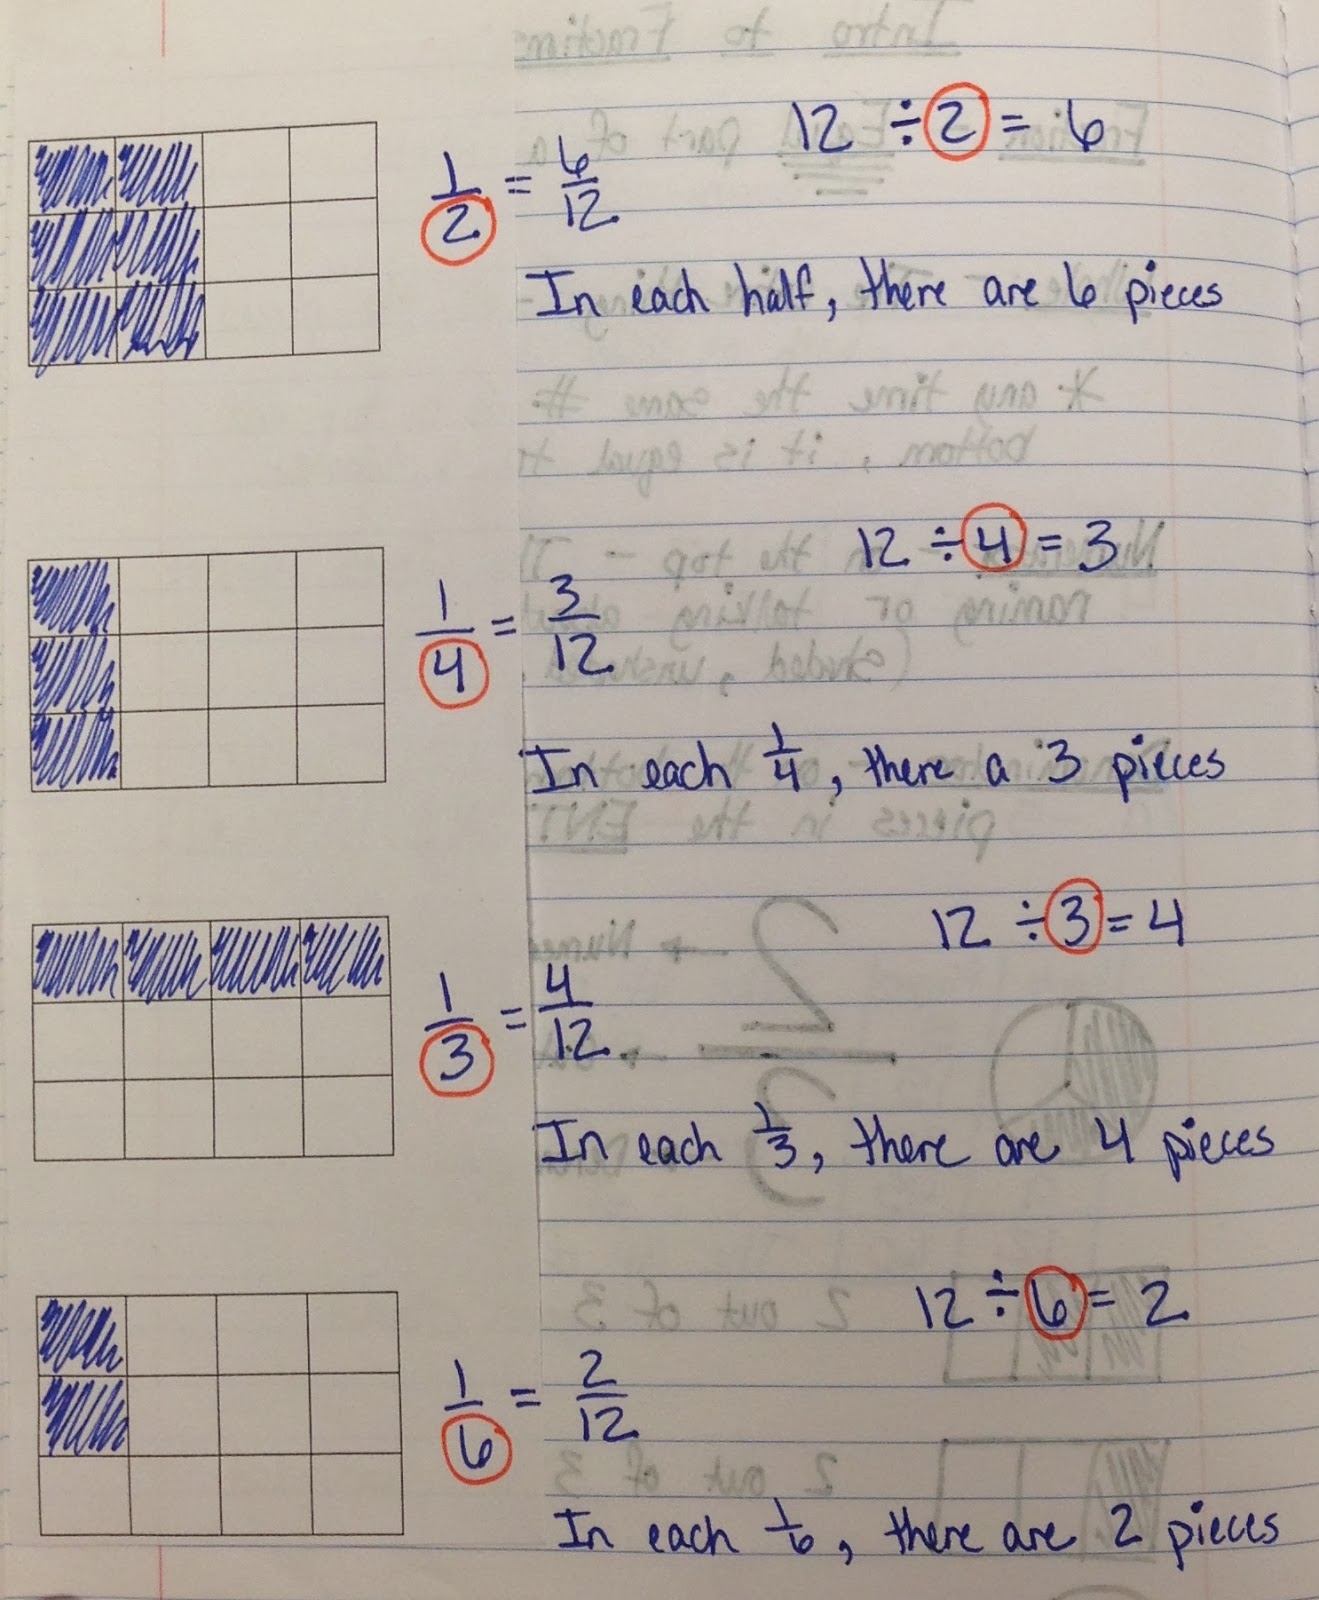 12 ÷ 2 = 6
1/2 = 6/12
In each half, there are 6 pieces
12 ÷ 4 = 3
1/4 = 3/12
In each 1/4, there a 3 pieces
12 ÷ 3 = 4
1/3 = 4/12
In each 1/3, there are 4 pieces
12 ÷ 6 = 2
1/6 = 2/12
In each 1/6, there are 2 pieces